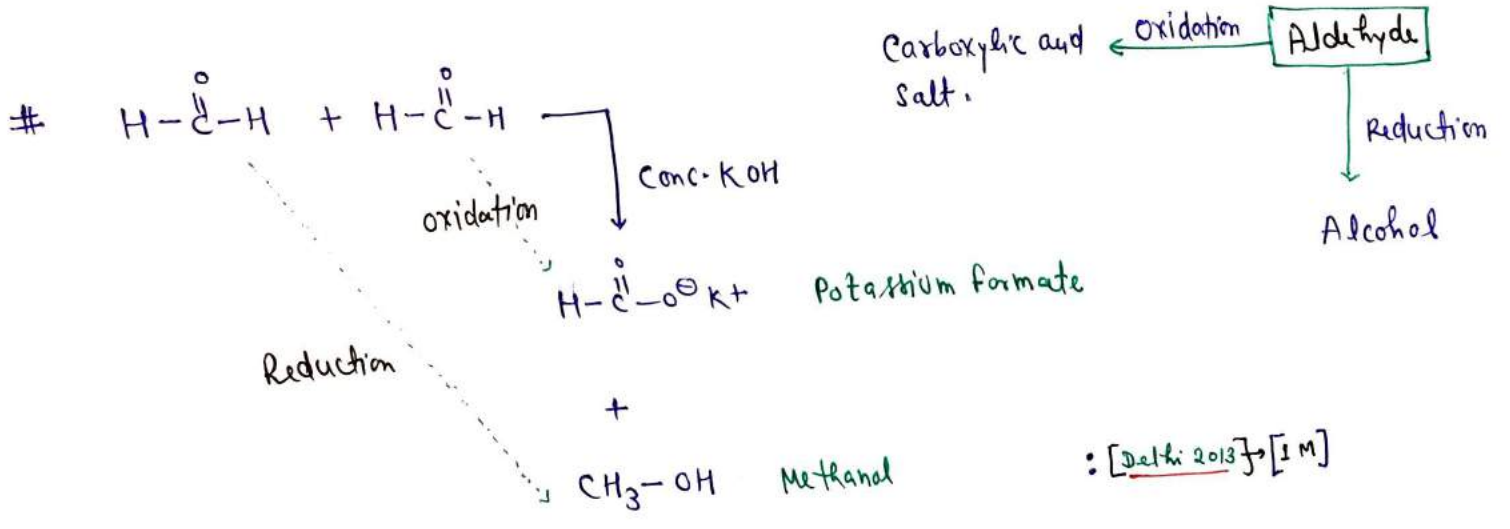 Carboxylic and ← Oxidation Aldehyde
Salt.
Reduction
Alcohol
# H-C-H + H-C-H
O O
Conc. KOH
oxidation
O
H-C-O⊖ K+ Potassium formate
Reduction
+
CH3-OH Methanol : [Delhi 2013]→[1 M]